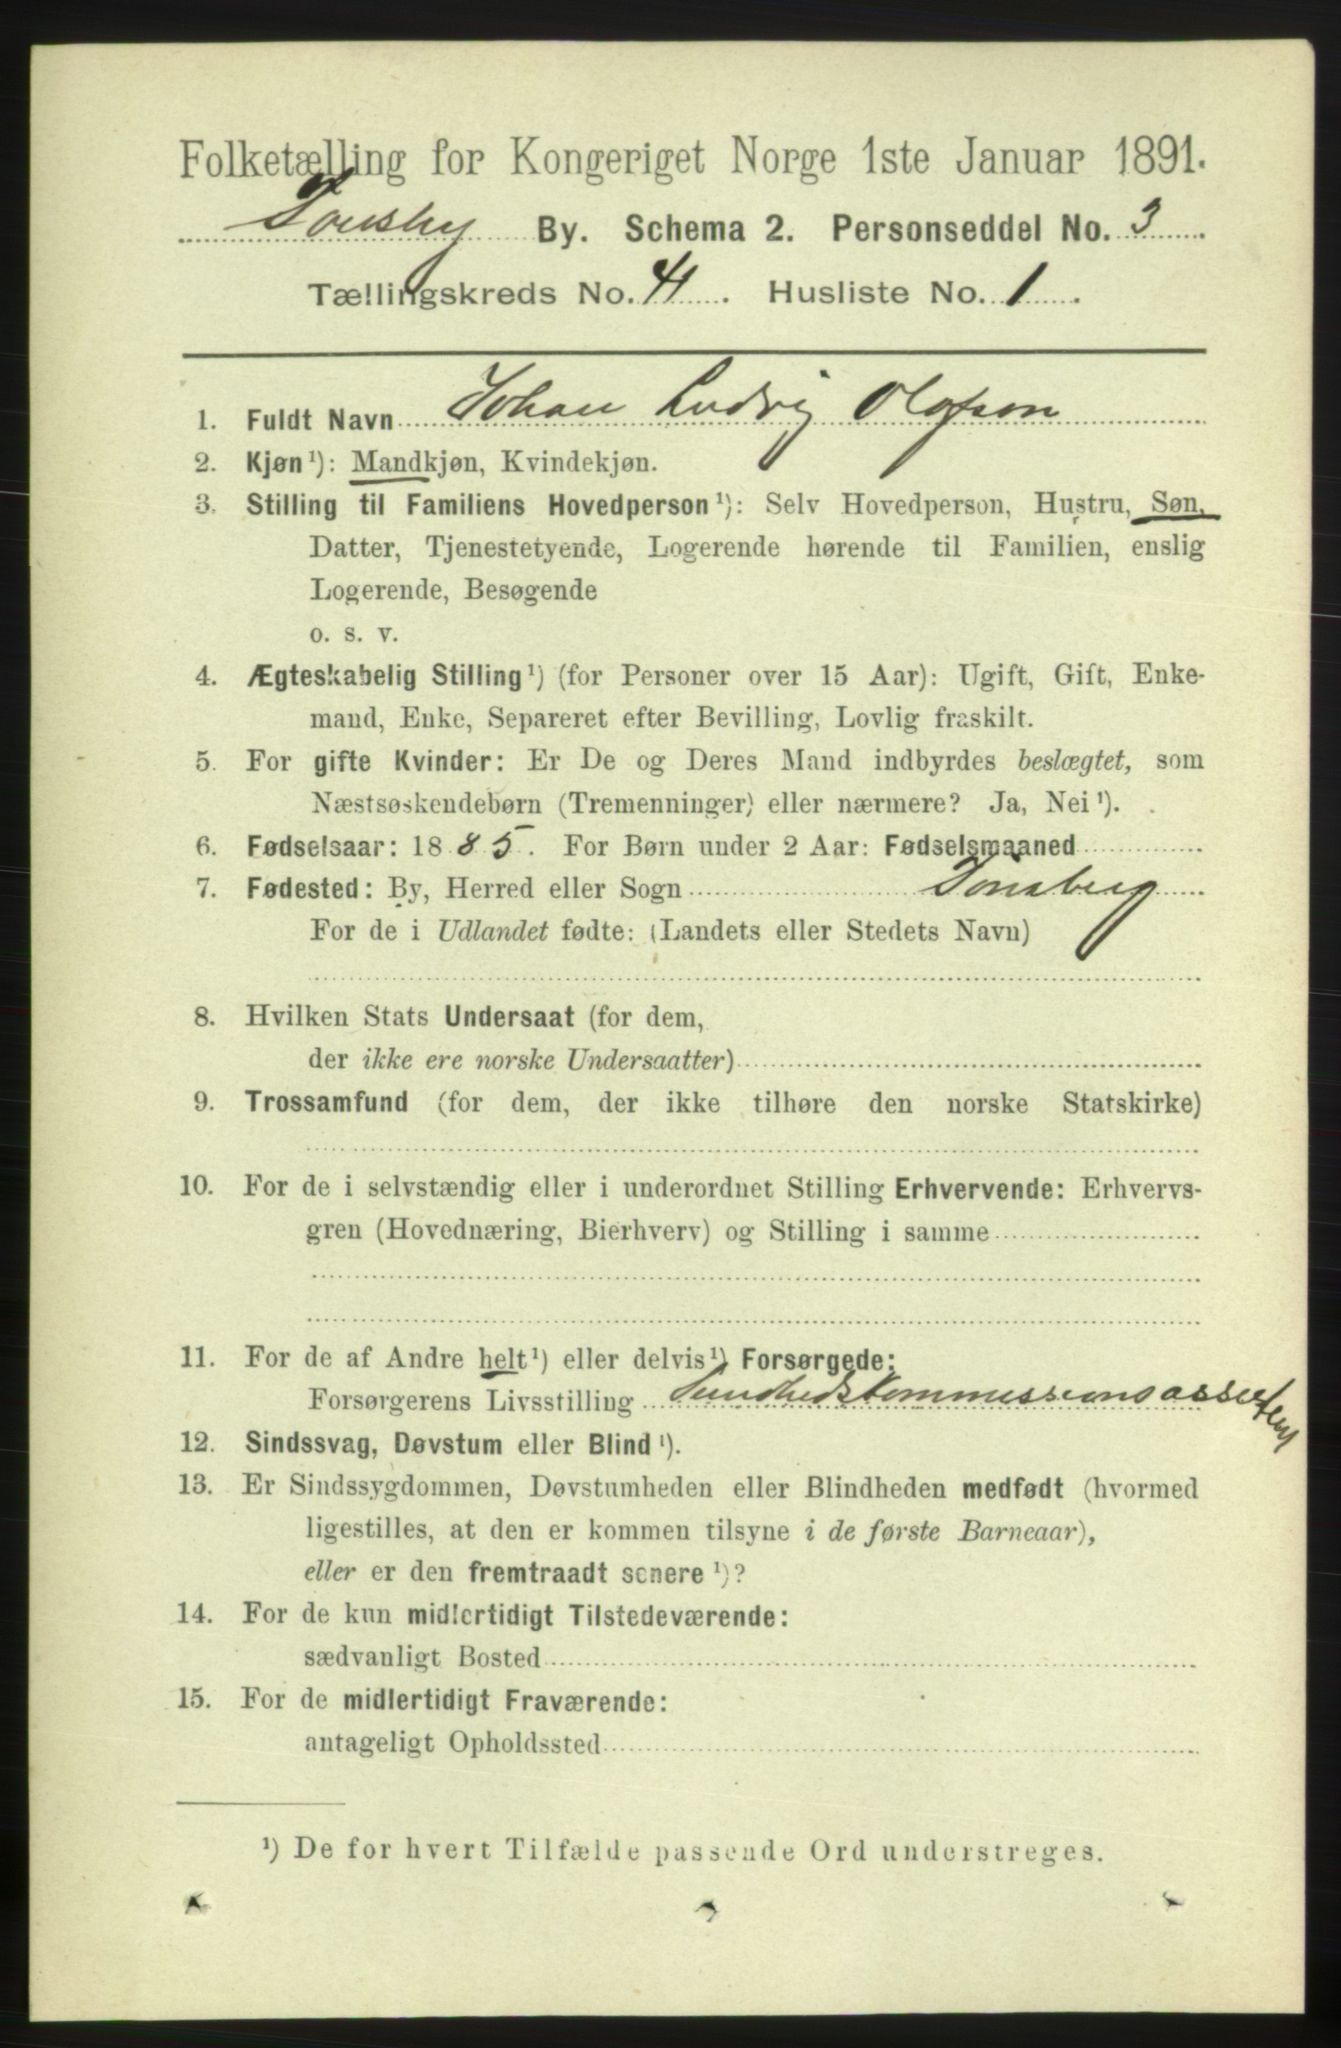 Folketælling for Kongeriget Norge 1ste Januar 1891.
By. Schema 2. Personseddel No. 3
Tællingskreds No. 41. Husliste No. 1.
1. Fuldt Navn Johan Ludvig Olafson
2. Kjøn¹): Mandkjøn, Kvindekjøn.
3. Stilling til Familiens Hovedperson¹): Selv Hovedperson, Hustru, Søn,
Datter, Tjenestetyende, Logerende hørende til Familien, enslig
Logerende, Besøgende
o. s. v.
4. Ægteskabelig Stilling¹) (for Personer over 15 Aar): Ugift, Gift, Enke-
mand, Enke, Separeret efter Bevilling, Lovlig fraskilt.
5. For gifte Kvinder: Er De og Deres Mand indbyrdes beslægtet, som
Næstsøskendebørn (Tremenninger) eller nærmere? Ja, Nei¹).
6. Fødselsaar: 1885. For Børn under 2 Aar: Fødselsmaaned
7. Fødested: By, Herred eller Sogn Tønsberg
For de i Udlandet fødte: (Landets eller Stedets Navn)
8. Hvilken Stats Undersaat (for dem,
der ikke ere norske Undersaatter)
9. Trossamfund (for dem, der ikke tilhøre den norske Statskirke)
10. For de i selvstændig eller i underordnet Stilling Erhvervende: Erhvervs-
gren (Hovednæring, Bierhverv) og Stilling i samme
11. For de af Andre helt¹) eller delvis¹) Forsørgede:
Forsørgerens Livsstilling Sundhedskommissionsassistent
12. Sindssvag, Døvstum eller Blind¹).
13. Er Sindssygdommen, Døvstumheden eller Blindheden medfødt (hvormed
ligestilles, at den er kommen tilsyne i de første Barneaar),
eller er den fremtraadt senere¹)?
14. For de kun midlertidigt Tilstedeværende:
sædvanligt Bosted
15. For de midlertidigt Fraværende:
antageligt Opholdssted
¹) De for hvert Tilfælde passende Ord understreges.